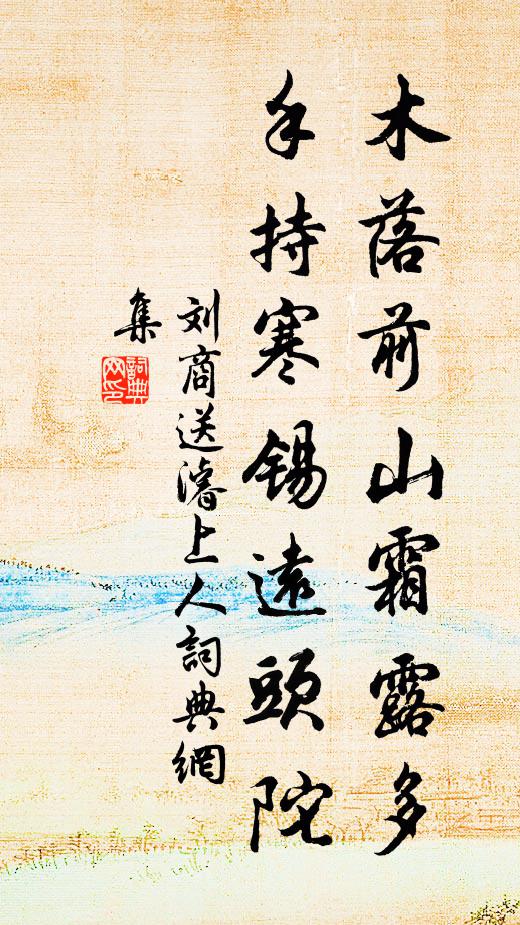 木落前山霜露多
手持寒锡遠頭陀
刘商送濬上人詞典網
集
詞典网印